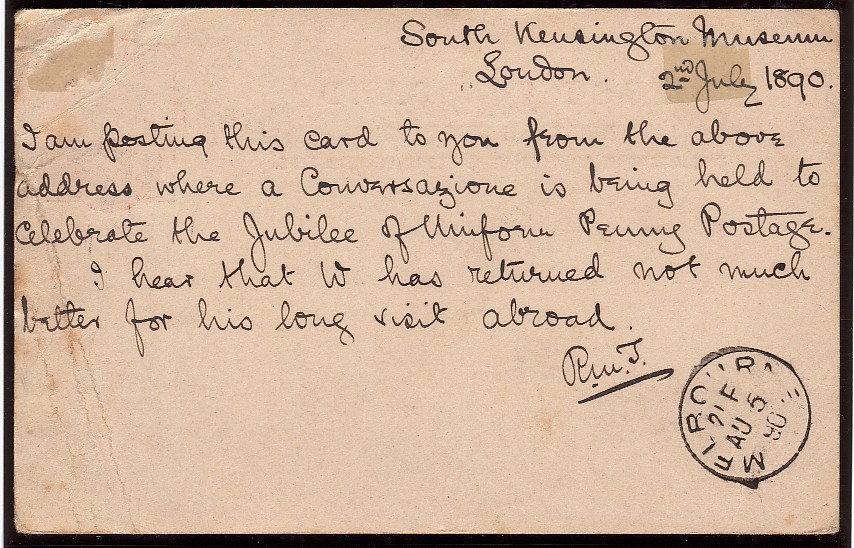 South Kensington Museum
London. 2nd July 1890.
I am posting this card to you from the above
address where a Conversazione is being held to
celebrate the Jubilee of Uniform Penny Postage.
I hear that W has returned not much
better for his long visit abroad.
R.W.T.
MELBOURNE
21 F
AU 5
90